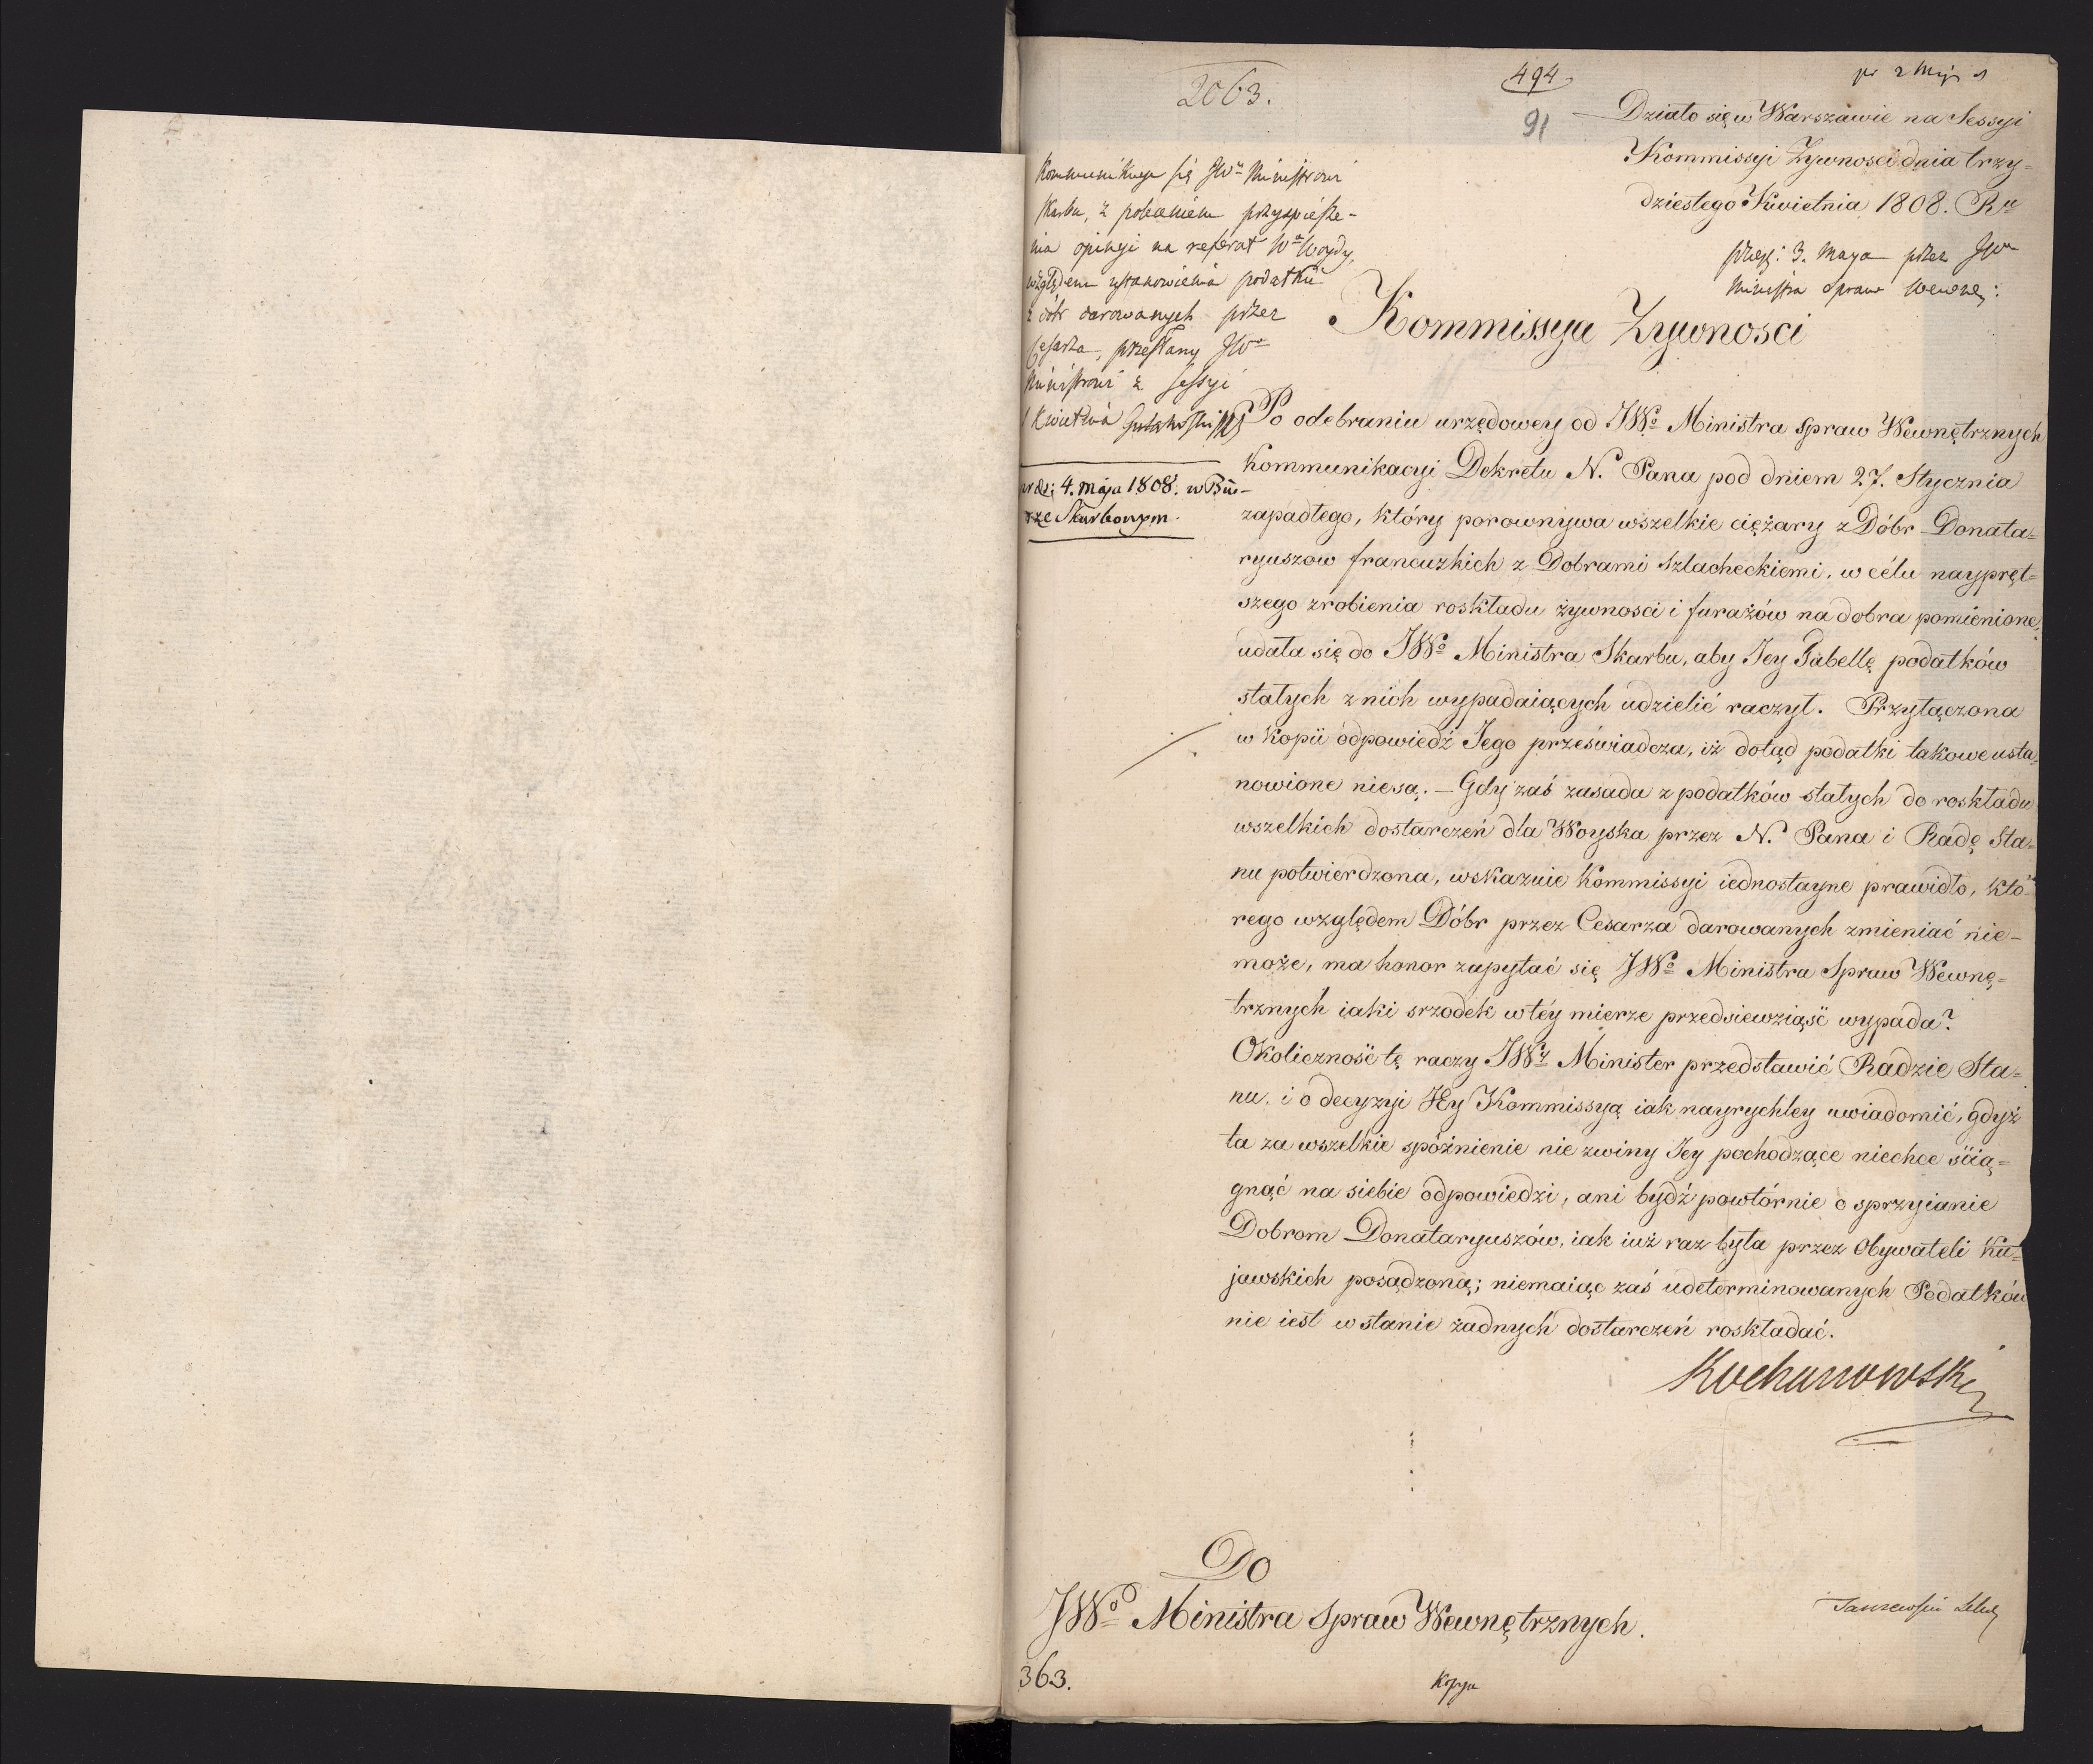 2063.
494
91
pr 2 Maja
Działo się w Warszawie na Sessyi
Kommissyi Zywnosci dnia trzy=
dziestego Kwietnia 1808. Ru
przez: 3. Maja przez JWo
Ministra Spraw Wewnę:
Kommunikuje się JWu Ministrowi
Skarbu, z poleceniem przyspiesze-
nia opinyi na referat Wo Woydy,
względem ustanowienia podatku
z dóbr darowanych przez
Cesarza, przesłany JWu
Ministrowi z Sessyi
Kwietnia
4. Maja 1808. w Biu-
rze Skarbowym.
Kommissya Zywnosci
Po odebraniu urzędowey od JWo Ministra Spraw Wewnętrznych
Kommunikacyi Dekretu N. Pana pod dniem 27. Stycznia
zapadłego, który porownywa wszelkie ciężary z Dóbr Donata=
ryuszow francuzkich z Dobrami Szlacheckiemi, w célu naypręt=
szego zrobienia roskładu żywnosci i furażów na dobra pomienione,
udała się do JWo Ministra Skarbu, aby Jey Tabellę podatków
stałych z nich wypadaiących udzielić raczył. Przyłączona
w Kopii odpowiedź Jego przeświadcza, iż dotąd podatki takowe usta=
nowione niesą. — Gdy zaś zasada z podatków stałych do roskładu
wszelkich dostarczeń dla Woyska przez N. Pana i Radę Sta=
nu potwierdzona, wskazuie Kommissyi iednostayne prawidło, któ=
rego względem Dóbr przez Cesarza darowanych zmieniać nie-
może, ma honor zapytać się JWo Ministra Spraw Wewnę=
trznych iaki srzodek w téy mierze przedsiewziąść wypada?
Okoliczność tę raczy JWy Minister przedstawić Radzie Sta=
nu, i o decyzyi Jey Kommissyą iak nayrychley uwiadomić, gdyż
ta za wszelkie spóźnienie nie zwiny Jey pochodzące niechce ścią=
gnąć na siebie odpowiedzi, ani bydź powtórnie o sprzyianie
Dobrom Donataryuszów, iak iuż raz była przez Obywateli Ku=
jawskich posądzoną; niemaiąc zaś udeterminowanych Podatków
nie iest w stanie żadnych dostarczeń roskładać.
Kochanowski
Do
JWo Ministra Spraw Wewnętrznych.
363.
Kopya